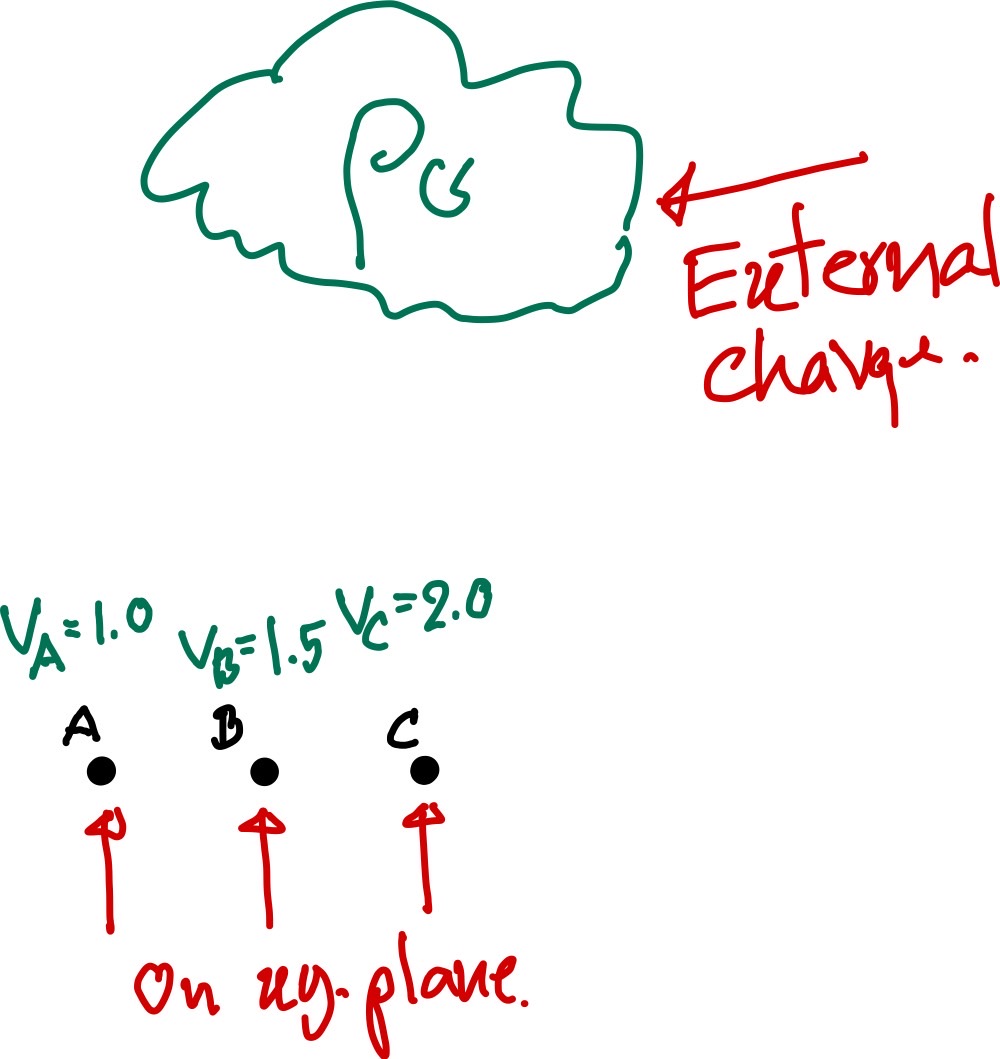 External
charge.
V_A=1.0 V_B=1.5 V_C=2.0
A B C
On xy-plane.